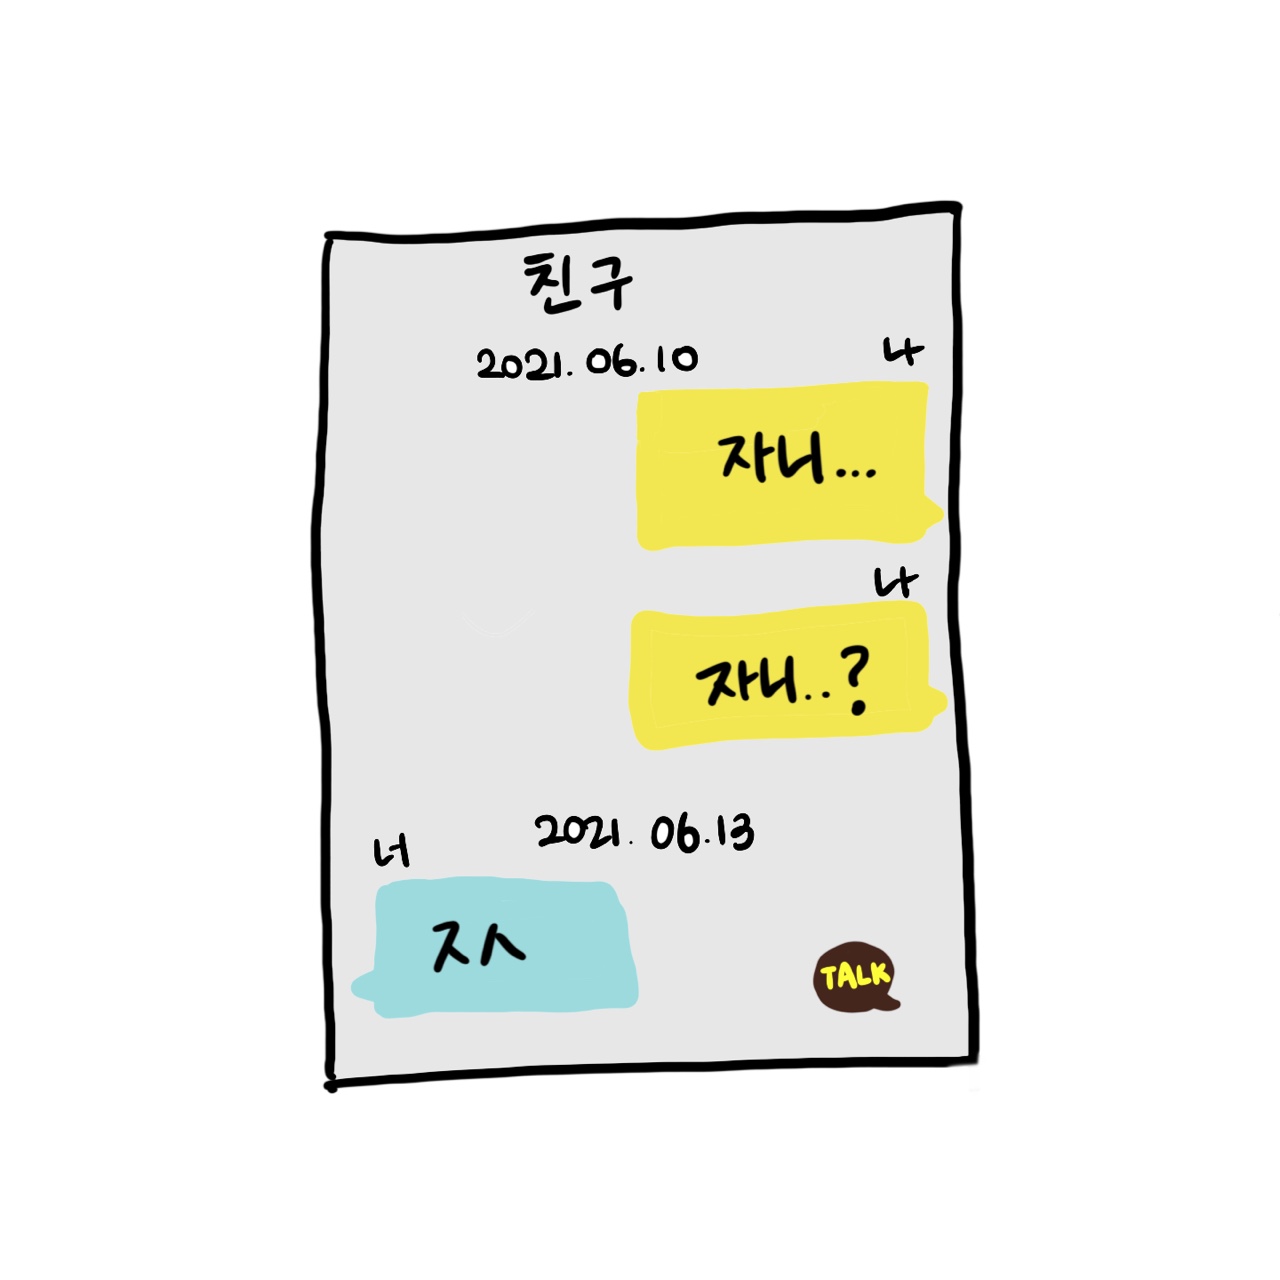 친구
2021. 06. 10
나
자니...
나
자니..?
2021. 06.13
너
ㅈㅅ
TALK